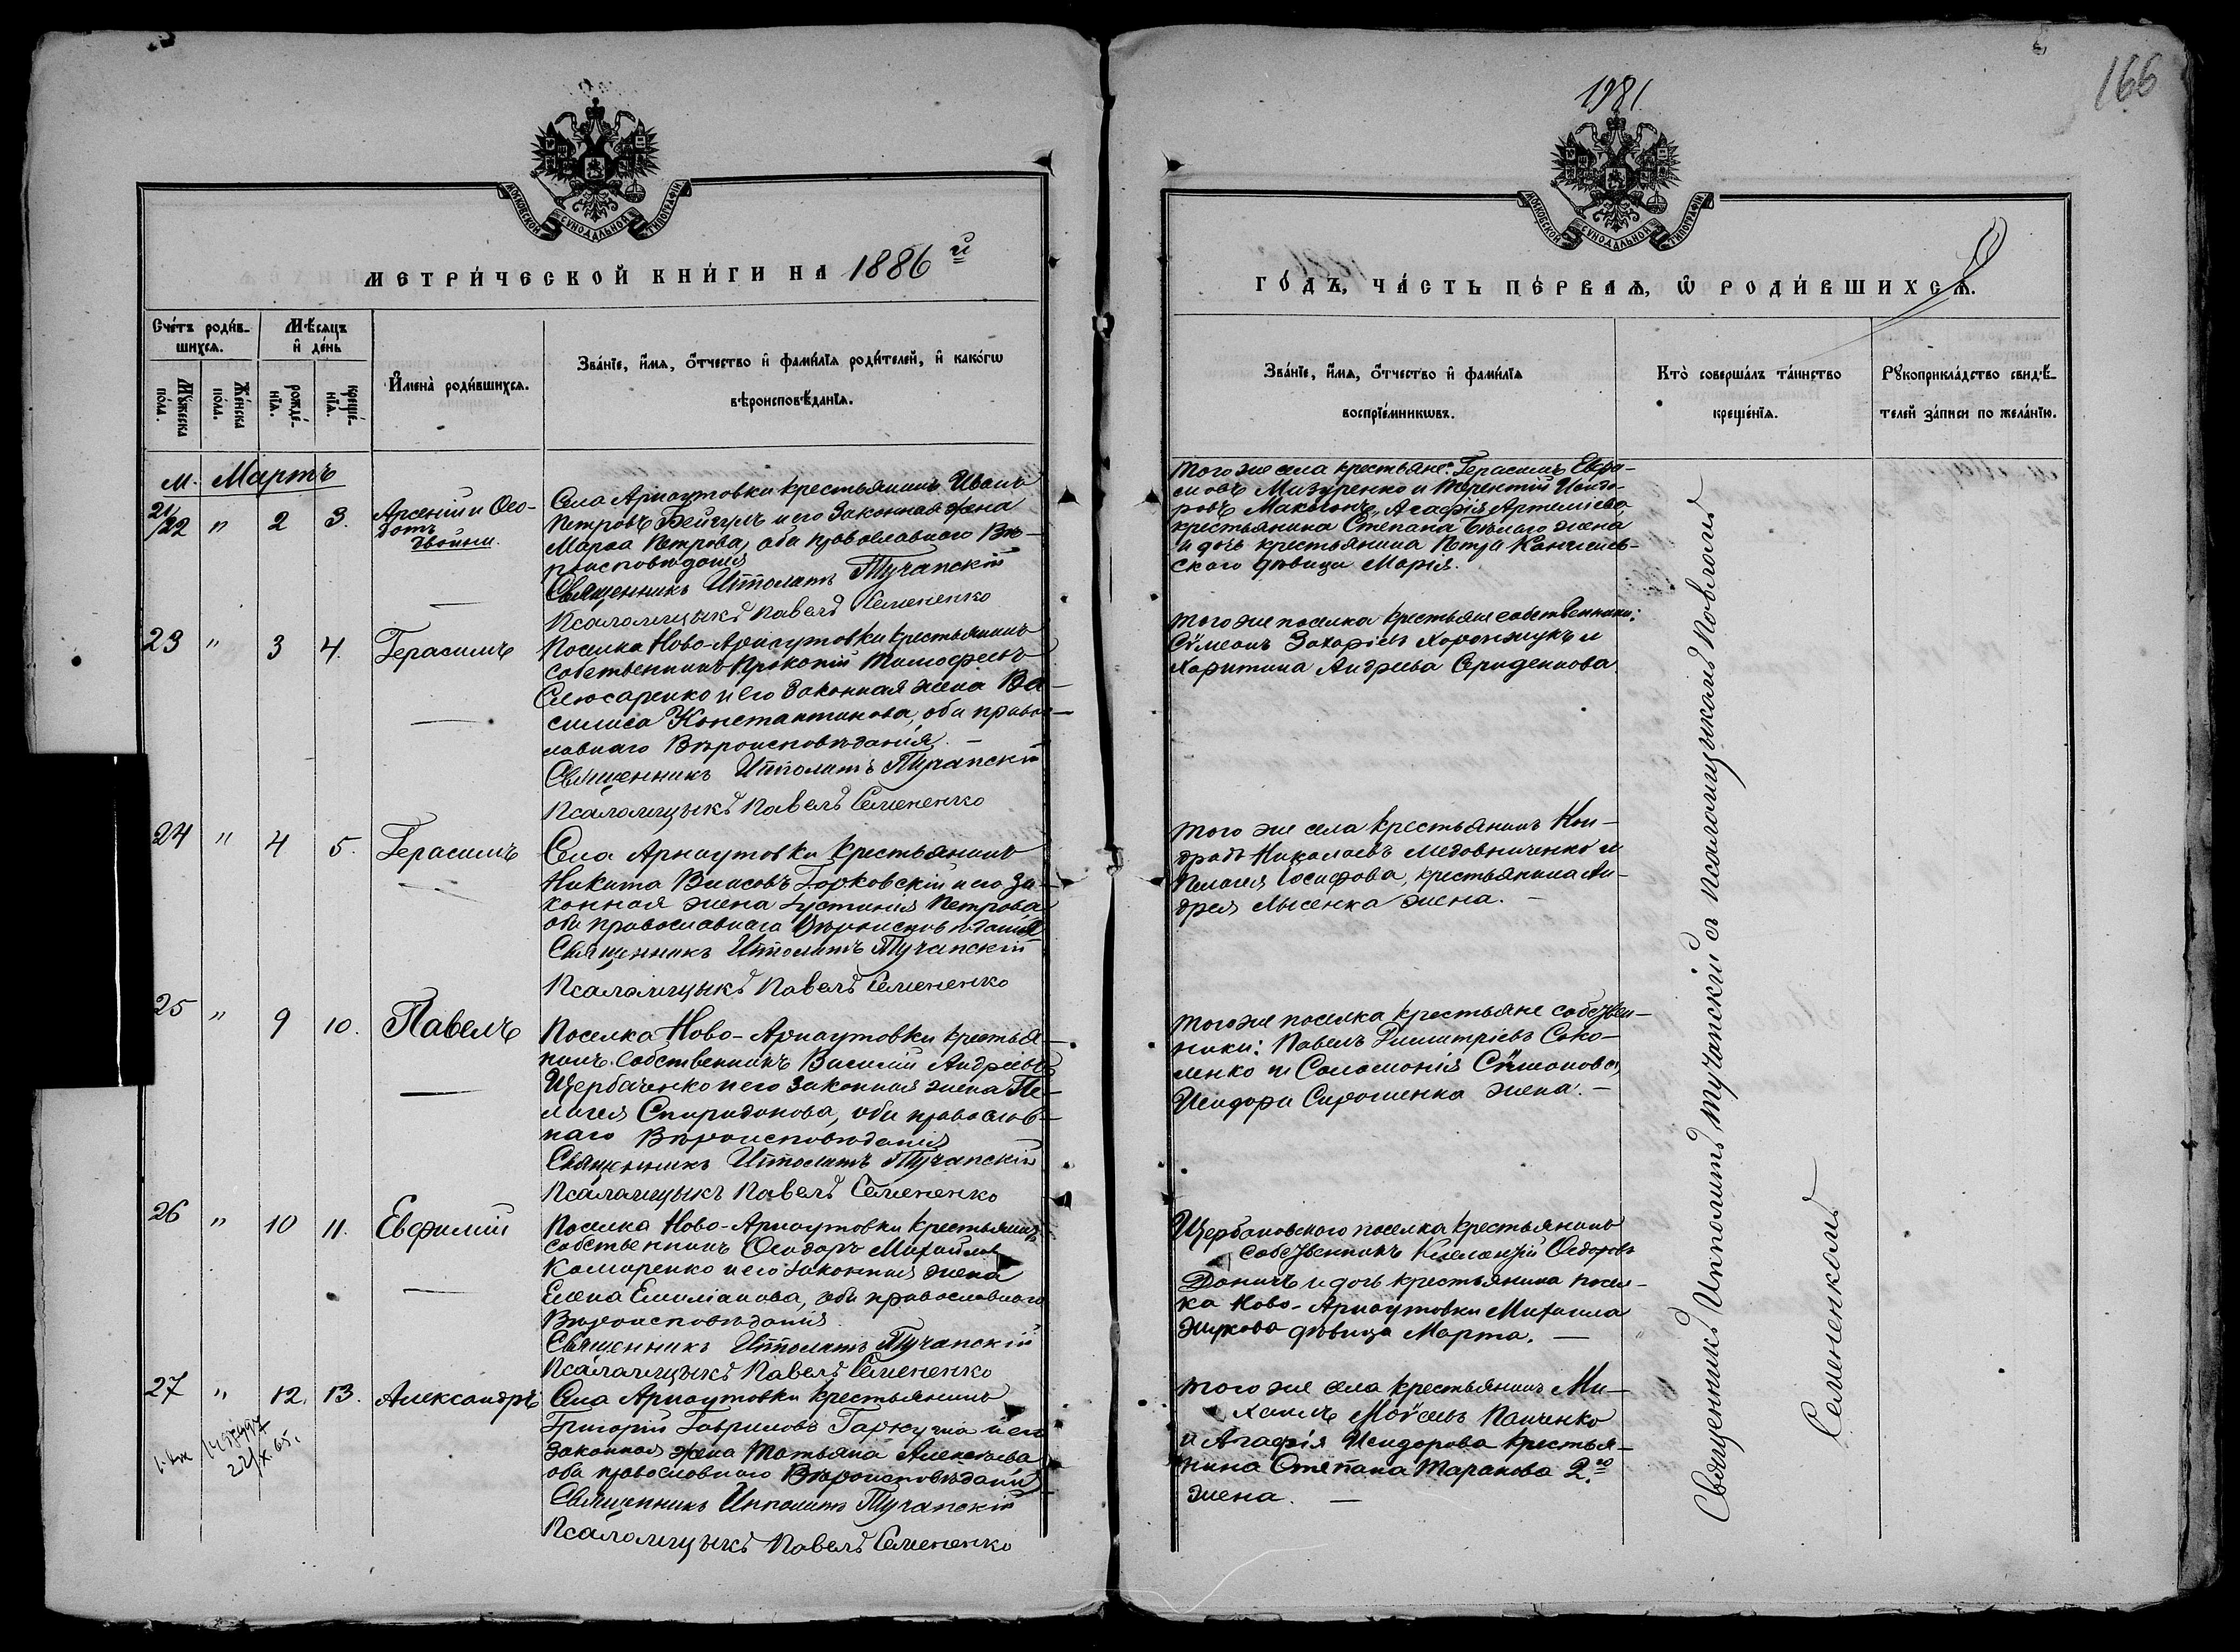 МОСКОВСКОЙ СУНОДАЛЬНОЙ ТИПОГРАФІИ
МЕТРИ́ЧЕСКОЙ КНИ́ГИ НА 1886 й
Сче́тъ роди́в-
шихсѧ.
Мѣ́сѧцъ
и҆ де́нь
Мꙋ́жеска
по́ла.
Же́нска
по́ла.
рожде́-
нїѧ.
креще́-
нїѧ.
И҆мена̀ роди́вшихсѧ.
Зва́нїе, и҆́мѧ, ѻ҆́тчество и҆ фами́лїѧ роди́телей, и҆ како́гѡ
вѣроисповѣ́данїѧ.
М. Мартъ
21/22 " 2 3.
Арсеній и Ѳео-
дотъ
двойни.
Села Арнаутовки крестьянинъ Иванъ
Петровъ Бейгулъ и его законная жена
Марѳа Петрова, оба православнаго Вѣ-
роисповѣданія
Священникъ Ипполитъ Тучапскій
Псаломщыкъ Павелъ Семененко
23 " 3 4. Герасимъ
Поселка Ново-Арнаутовки крестьянинъ
собственникъ Прокопій Тимофеевъ
Слюсаренко и его законная жена Ва-
силиса Константинова, оба право-
славнаго Вѣроисповѣданія. —
Священникъ Ипполитъ Тучапскій
Псаломщыкъ Павелъ Семененко
24 " 4 5. Герасимъ
Села Арнаутовки крестьянинъ
Никита Власовъ Горковскій и его за-
конная жена Іустинія Петрова
оба православнаго Вѣроисповѣданія
Священникъ Ипполитъ Тучапскій
Псаломщыкъ Павелъ Семененко
25 " 9 10. Павелъ
Поселка Ново-Арнаутовки крестья-
нинъ собственникъ Василій Андреевъ
Щербаченко и его законная жена Пе-
лагея Спиридонова, оба православ-
наго Вѣроисповѣданія
Священникъ Ипполитъ Тучапскій
Псаломщыкъ Павелъ Семененко
26 " 10 11. Евфимій
Поселка Ново-Арнаутовки крестьянинъ
собственникъ Ѳеодоръ Михайловъ
Комаренко и его законная жена
Елена Емиліанова, оба православнаго
Вѣроисповѣданія
Священникъ Ипполитъ Тучапскій
Псаломщыкъ Павелъ Семененко
27 " 12. 13. Александръ
Села Арнаутовки крестьянинъ
Григорій Гавриловъ Гаркуша и его
законная жена Татьяна Алексѣева
оба православнаго Вѣроисповѣданія
Священникъ Ипполитъ Тучапскій
Псаломщыкъ Павелъ Семененко
22/X.65.
166
1981.
МОСКОВСКОЙ СУНОДАЛЬНОЙ ТИПОГРАФІИ
ГО́ДЪ, ЧА́СТЬ ПЕ́РВАѦ, Ѽ РОДИ́ВШИХСѦ.
Зва́нїе, и҆́мѧ, ѻ҆́тчество и҆ фами́лїѧ
воспрїе́мникѡвъ.
Кто̀ соверша́лъ та́инство
креще́нїѧ.
Рꙋкоприкла́дство свидѣ́-
телей за́писи по жела́нїю.
Того же села крестьяне: Герасимъ Евфи-
мовъ Мазуренко и Терентій Исидо-
ровъ Макогонъ, Агафія Артеміева
крестьянина Степана Бѣлаго жена
и дочь крестьянина Петра
ского дѣвица Марія.
Того же поселка крестьяне собственники:
Сѵмеонъ Захаріевъ Харонжукъ и
Харитина Андреева
Того же села крестьянинъ Кон-
дратъ Николаевъ Медовниченко и
Пелагея Іосифова, крестьянина Ан-
дрея Лысенка жена. —
Того же поселка крестьяне собствен-
ники: Павелъ Димитріевъ Соко-
ленко и Соломонія Сѵмеонова,
Исидора Сирошенка жена. —
Щербановского поселка крестьянинъ
собственникъ Ѳедоровъ
Доничъ и дочь крестьянина посел-
ка Ново-Арнаутовки Михаила
Жукова дѣвица Марта. —
Того же села крестьянинъ Ми-
хаилъ Моѵсеевъ Панченко
и Агафія Исидорова крестья-
нина Степана Таранова 2.го
жена. —
Священникъ Ипполитъ Тучапскій съ псаломщыкомъ Павломъ
Семененкомъ